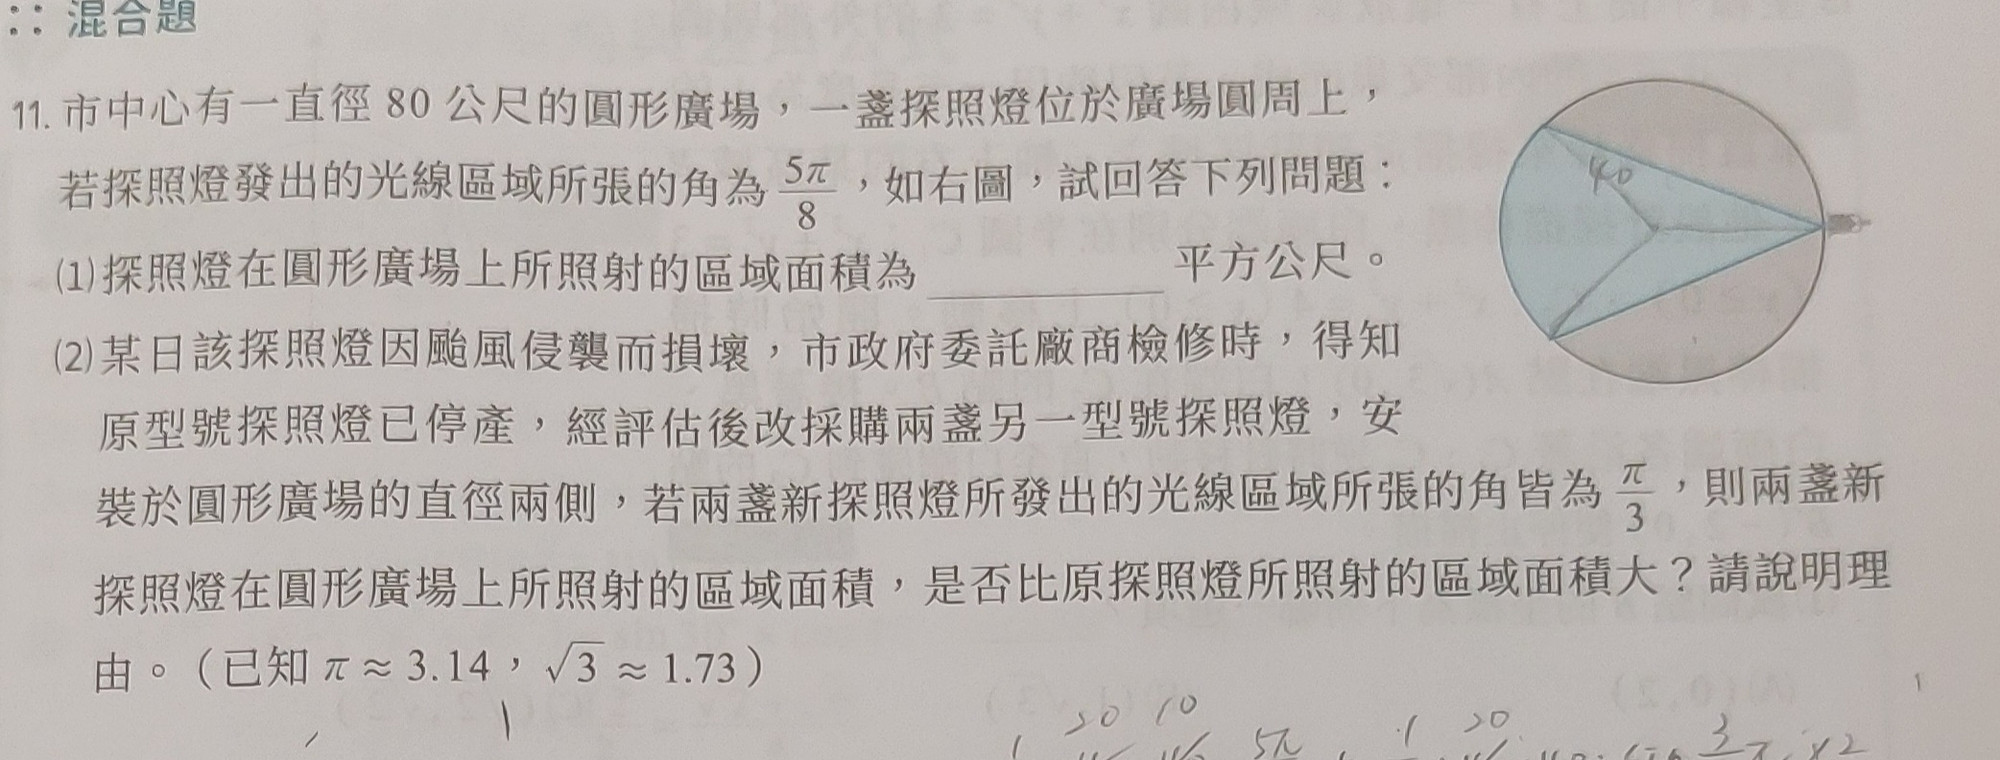 混合題
11. 市中心有一直徑 80 公尺的圓形廣場，一盞探照燈位於廣場圓周上，
若探照燈發出的光線區域所張的角為 5π/8，如右圖，試回答下列問題：
40
(1) 探照燈在圓形廣場上所照射的區域面積為 ________ 平方公尺。
(2) 某日該探照燈因颱風侵襲而損壞，市政府委託廠商檢修時，得知
原型號探照燈已停產，經評估後改採購兩盞另一型號探照燈，安
裝於圓形廣場的直徑兩側，若兩盞新探照燈所發出的光線區域所張的角皆為 π/3，則兩盞新
探照燈在圓形廣場上所照射的區域面積，是否比原探照燈所照射的區域面積大？請說明理
由。（已知 π ≈ 3.14，√3 ≈ 1.73）
20 10 20